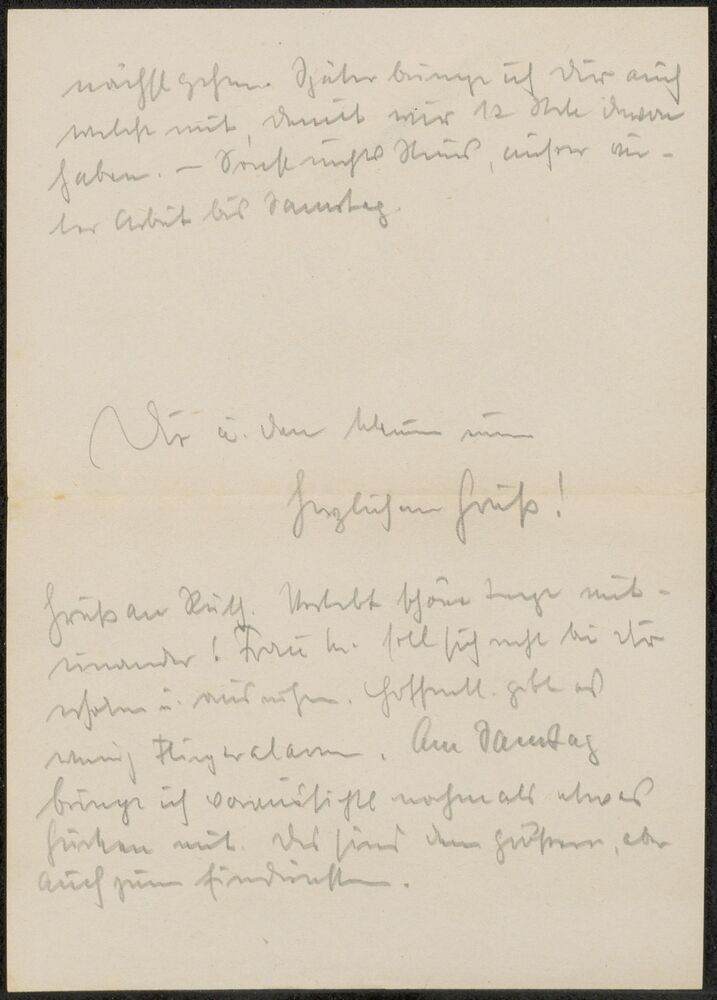 nächst gehen. Später bringe ich Dir auch
welche mit, damit wir 12 Stck davon
haben. – Sonst nichts Neues, außer vie-
ler Arbeit bis Samstag.
Dir u. den kleinen einen
herzlichen Gruß!
Gruß an Ruth. Verlebt schöne Tage mit-
einander! Frau M. soll sich recht bei Dir
erholen u. ausruhen. Hoffentl. gibt es
wenig Fliegeralarm. Am Samstag
bringe ich voraussichtl nochmals etwas
Gurken mit. Das sind dann größere, aber
auch zum Eindünsten.